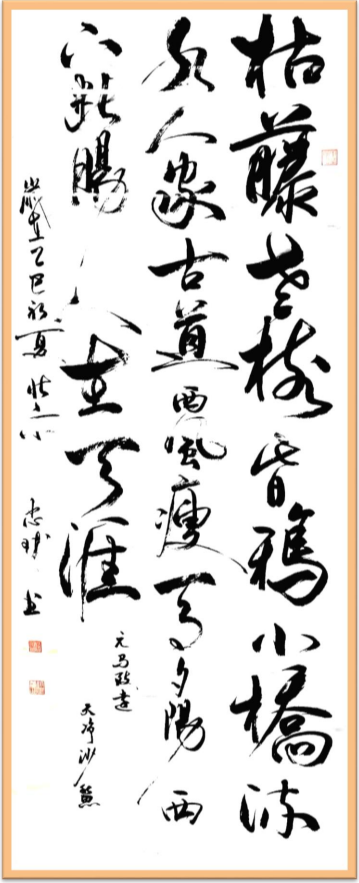 枯藤老樹昏鴉小橋流
水人家古道西風瘦馬夕陽西
下斷腸人在天涯
元馬致遠
天净沙
歲在乙巳初夏
書